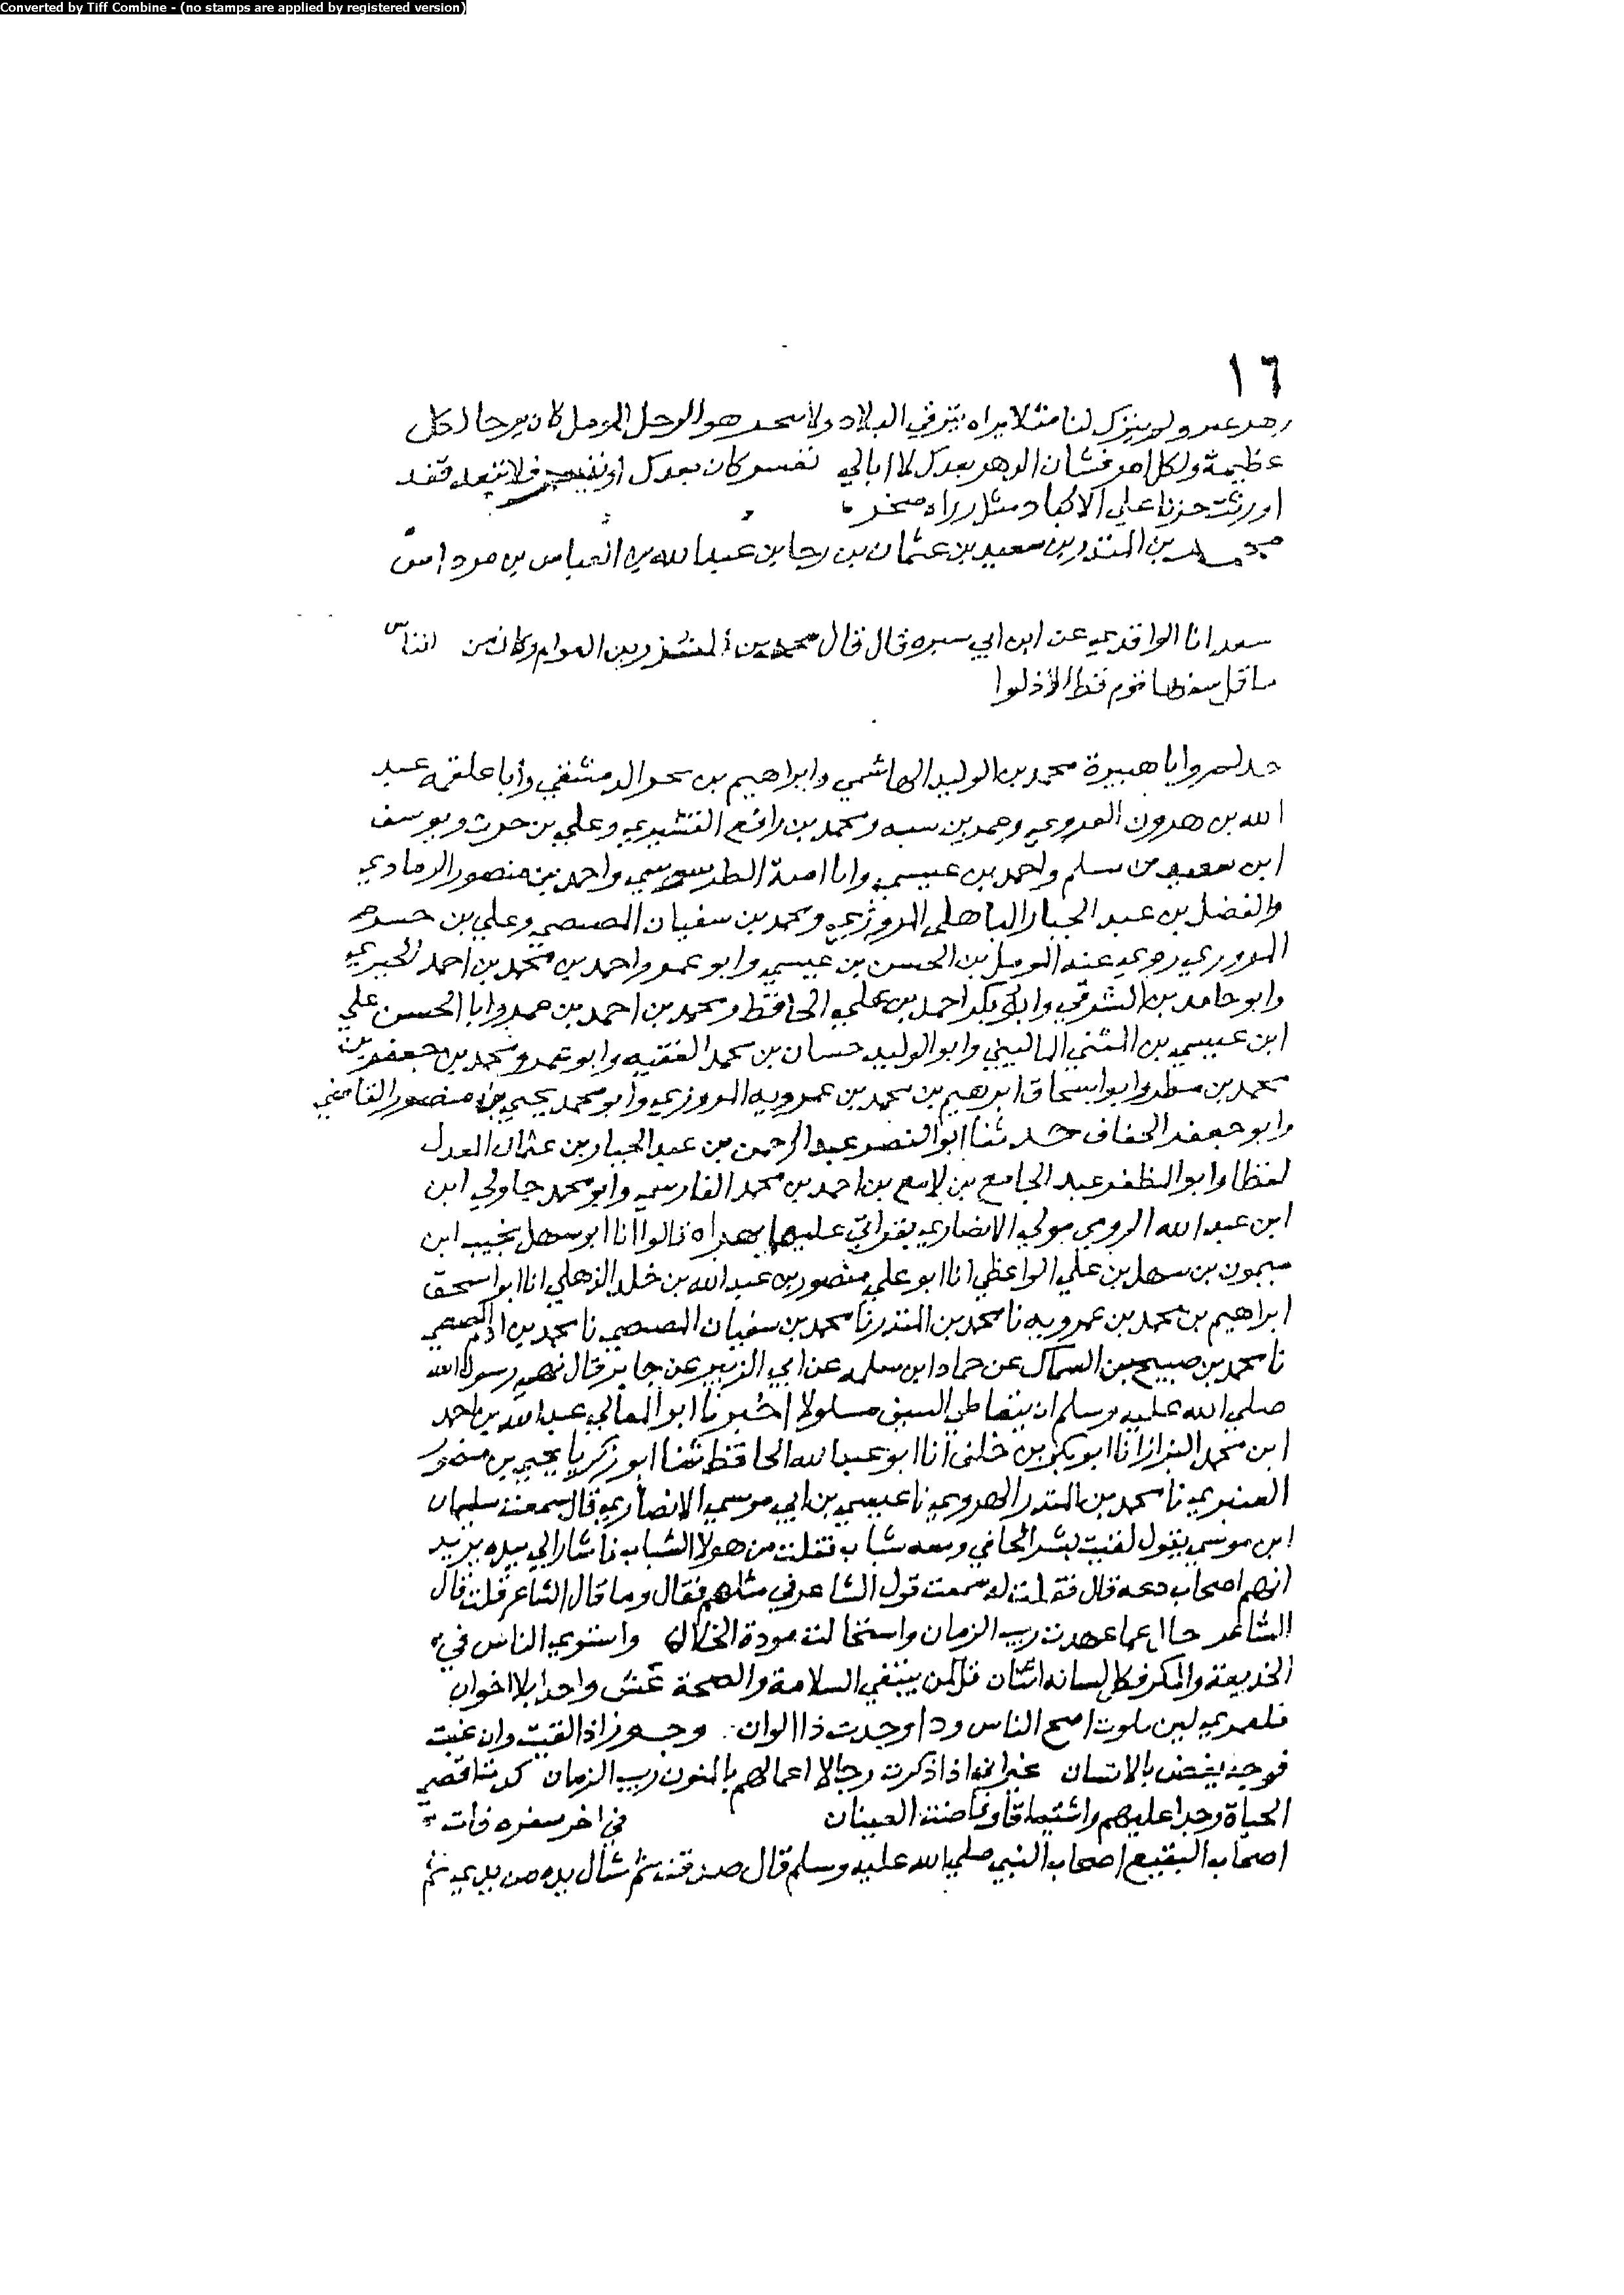 Converted by Tiff Combine - (no stamps are applied by registered version)
١٦
ولم ينزك لنا مثلا يراه في البلاد ولا هو الرجل كان لكل
عظيمة ولكل امر بعدك لا ابالي نفس كان بعدك فلا تبعد فقد
اورثت حزنا علي الاكباد مثل
محمد بن المنذر بن سعيد بن عثمان بن رجا بن عبد الله بن العباس بن مرداس
سعد انا الواقدي عن ابن ابي سبره قال قال محمد بن المنذر بن العوام وكان من الناس
ما قل سفها قوم قط الا ذلوا
وابا هبيرة محمد بن الوليد الهاشمي وابراهيم بن الدمشقي وأبا علقمه عبد
الله بن هرون ومحمد بن رافع القشيري وعلي بن حرب ويوسف
ابن سعيد بن مسلم واحمد بن عيسي وابا امية الطرسوسي واحمد بن منصور الرمادي
والفضل بن عبد الجبار الباهلي المروزي ومحمد بن سفيان المصيصي وعلي بن خشرم
المروزي روي عنه المومل بن الحسن بن عيسي وابو عمرو احمد بن محمد بن احمد الحيري
وابو حامد بن الشرقي وابو بكر احمد بن علي الحافظ ومحمد بن احمد بن حمدو ابا الحسن علي
ابن عيسي بن المثني الماليني وابو الوليد حسان بن محمد الفقيه وابو عمرو محمد بن جعفر بن
محمد بن مطر وابو اسحاق ابرهيم بن محمد بن عمرويه المروزي وابو محمد يحيي بن منصور القاضي
وابو جعفر الخفاف حدثنا ابو النصر عبد الرحمن بن عبد الجبار بن عثمان العدل
لفظا وابو المظفر عبد الجامع بن لامع بن احمد بن محمد الفارسي وابو محمد جاولي ابن
ابن عبد الله الرومي مولي الانصاري بقراتي عليهما بهراه قالوا انا ابو سهل نجيب ابن
ميمون بن سهل بن علي الواعظي انا ابو علي منصور بن عبد الله بن خلد الذهلي انا ابو اسحق
ابراهيم بن محمد بن عمرويه نا محمد بن المنذر نا محمد بن سفيان المصيصي نا محمد بن ادم المصيصي
نا محمد بن صبيح بن السماك عن حماد ابن سلمه عن ابي الزبير عن جابر قال نهي رسول الله
صلي الله عليه وسلم ان يتعاطي السيف مسلولا اخبرنا ابو المعالي عبد الله بن احمد
ابن محمد البزاز انا ابو بكر بن خلف انا ابو عبد الله الحافظ ثنا ابو زكريا يحيي بن منصور
العنبري نا محمد بن المنذر الهروي نا عيسي بن ابي موسي الانصاري قال سمعت سليمان
ابن موسي يقول لقيت بشر الحافي ومعه شباب فقلت من هولا الشباب فاشار الي بيده يريد
انهم اصحاب دعه قال فقلت له سمعت قول الشاعر في مثلهم فقال وما قال الشاعر قلت قال
الشاعر حال عما عهدت ريب الزمان واستحالت مودة الخلان واستوي الناس في
الخديعة والمكر فكل لسانه اثنان قل لمن يبتغي السلامة والصحة عش واحدا بلا اخوان
فلعمري لين بلوت اصح الناس ودا وجدت ذا الوان وجه اذا لقيت وان غبت
فوجه يغض بالانسان غير انه اذا ذكرت رجالا اعمالهم بالمنون ريب الزمان كدت اقصي
الحياة وجدا عليهم واشتياقا وفاضت العينان في اخر سفره فات
اصحاب البقيع اصحاب النبي صلي الله عليه وسلم قال صدقت ثم شال يده من يدي ثم